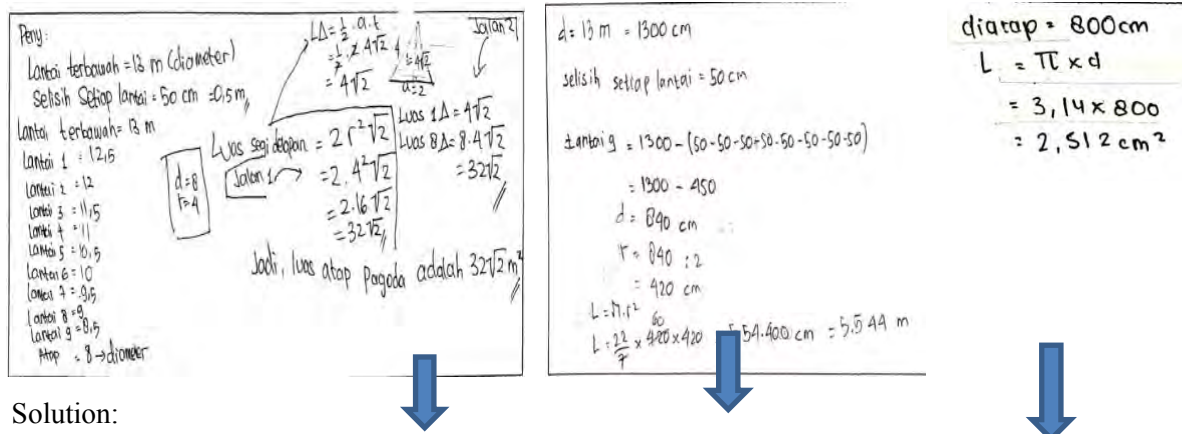 Peny:
Lantai terbawah = 13 m (diameter)
Selisih Setiap lantai = 50 cm = 0,5 m
Lantai terbawah = 13 m
Lantai 1 = 12,5
Lantai 2 = 12
Lantai 3 = 11,5
Lantai 4 = 11
Lantai 5 = 10,5
Lantai 6 = 10
Lantai 7 = 9,5
Lantai 8 = 9
Lantai 9 = 8,5
Atap = 8 → diameter
d = 8
r = 4
LΔ = 1/2 . a . t
= 4√2
t = 4√2
a = 2
Jalan 2
Luas segi delapan = 2 r² √2
Jalan 1 → = 2 . 4² √2
= 2 . 16 √2
= 32√2
Luas 1Δ = 4√2
Luas 8Δ = 8 . 4√2
= 32√2
Jadi, luas atap pagoda adalah 32√2 m²
d = 13 m = 1300 cm
selisih setiap lantai = 50 cm
Lantai 9 = 1300 - (50-50-50-50-50-50-50-50-50)
= 1300 - 450
d = 840 cm
r = 840 : 2
= 420 cm
L = π . r²
60
L = 22/7 × 420 × 420 54.400 cm = 5.544 m
diatap = 800 cm
L = π × d
= 3,14 × 800
= 2,512 cm²
Solution: